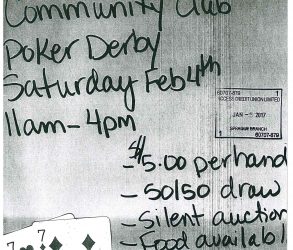 Community Club
Poker Derby
Saturday Feb 4th
11am - 4pm
60707-879 1
ACCESS CREDIT UNION LIMITED
JAN - 5 2017
SPRAGUE BRANCH
1 60707-879
- $5.00 per hand
- 50/50 draw
- Silent auction
- Food availabl
7
7